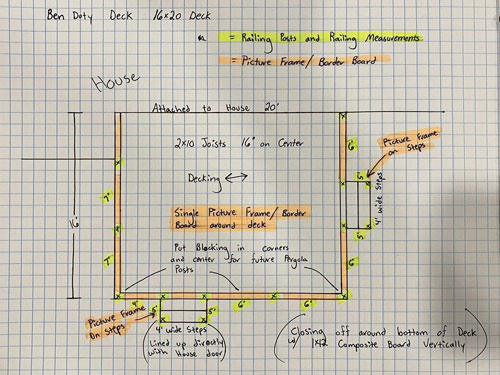 Ben Doty Deck 16x20 Deck
= Railing Posts and Railing Measurements
= Picture Frame/ Border Board
House
Attached to House 20'
2x10 Joists 16" on Center
6'
Picture Frame
on Steps
Decking
5'
4' wide Steps
16'
7'
Single Picture Frame/ Border
Board around deck
5'
7'
Put Blocking in corners
and center for future Pergola
Posts
6'
4'
5'
5'
6'
6'
Picture Frame
On Steps
4' wide Steps
Lined up directly
with House door
Closing off around bottom of Deck
w/ 1x12 Composite Board Vertically